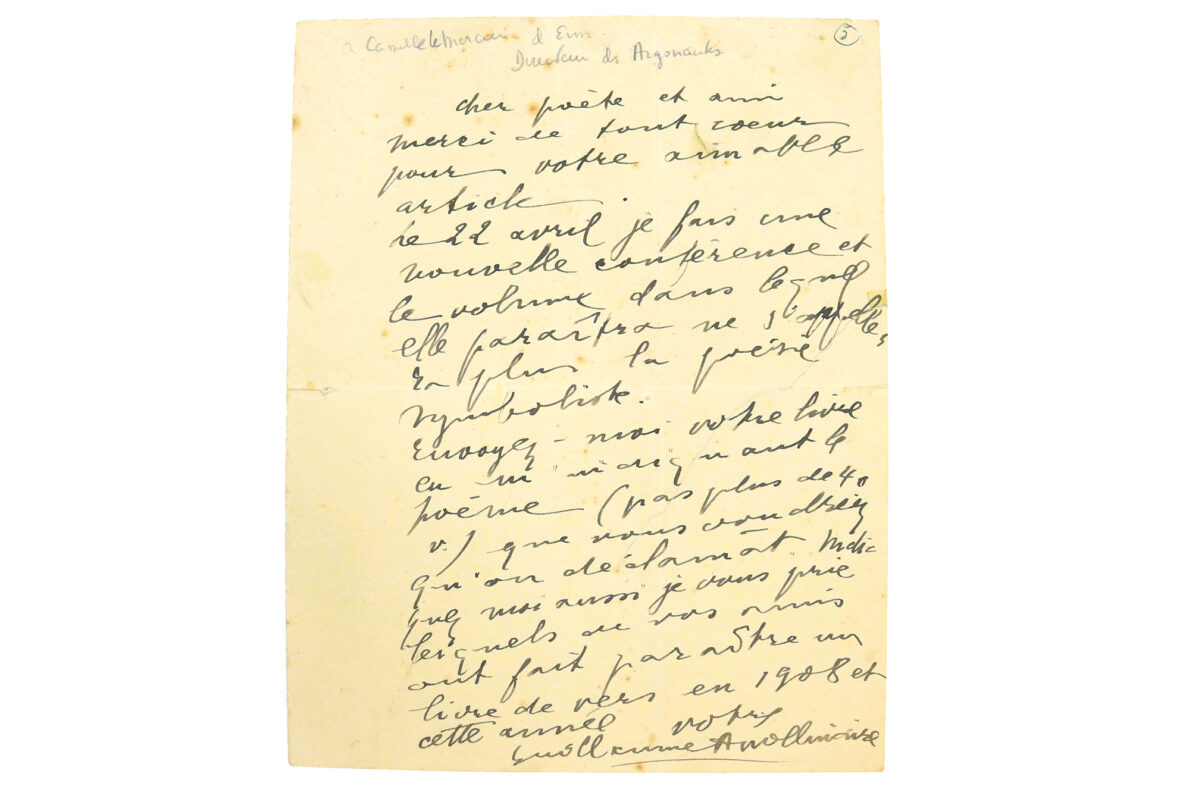 à Camille Le Mercier d'Erm
Directeur des Argonautes
5
cher poète et ami
merci de tout coeur
pour votre aimable
article.
Le 22 avril je fais une
nouvelle conférence et
le volume dans lequel
elle paraîtra ne s'appellera
en plus la poésie
symboliste.
Envoyez-moi votre livre
en m'indiquant le
poème (pas plus de 40
v.) que vous voudriez
qu'on déclamât. Indi-
quez moi aussi je vous prie
lesquels de vos amis
ont fait paraître un
livre de vers en 1908 et
cette année votre
Guillaume Apollinaire